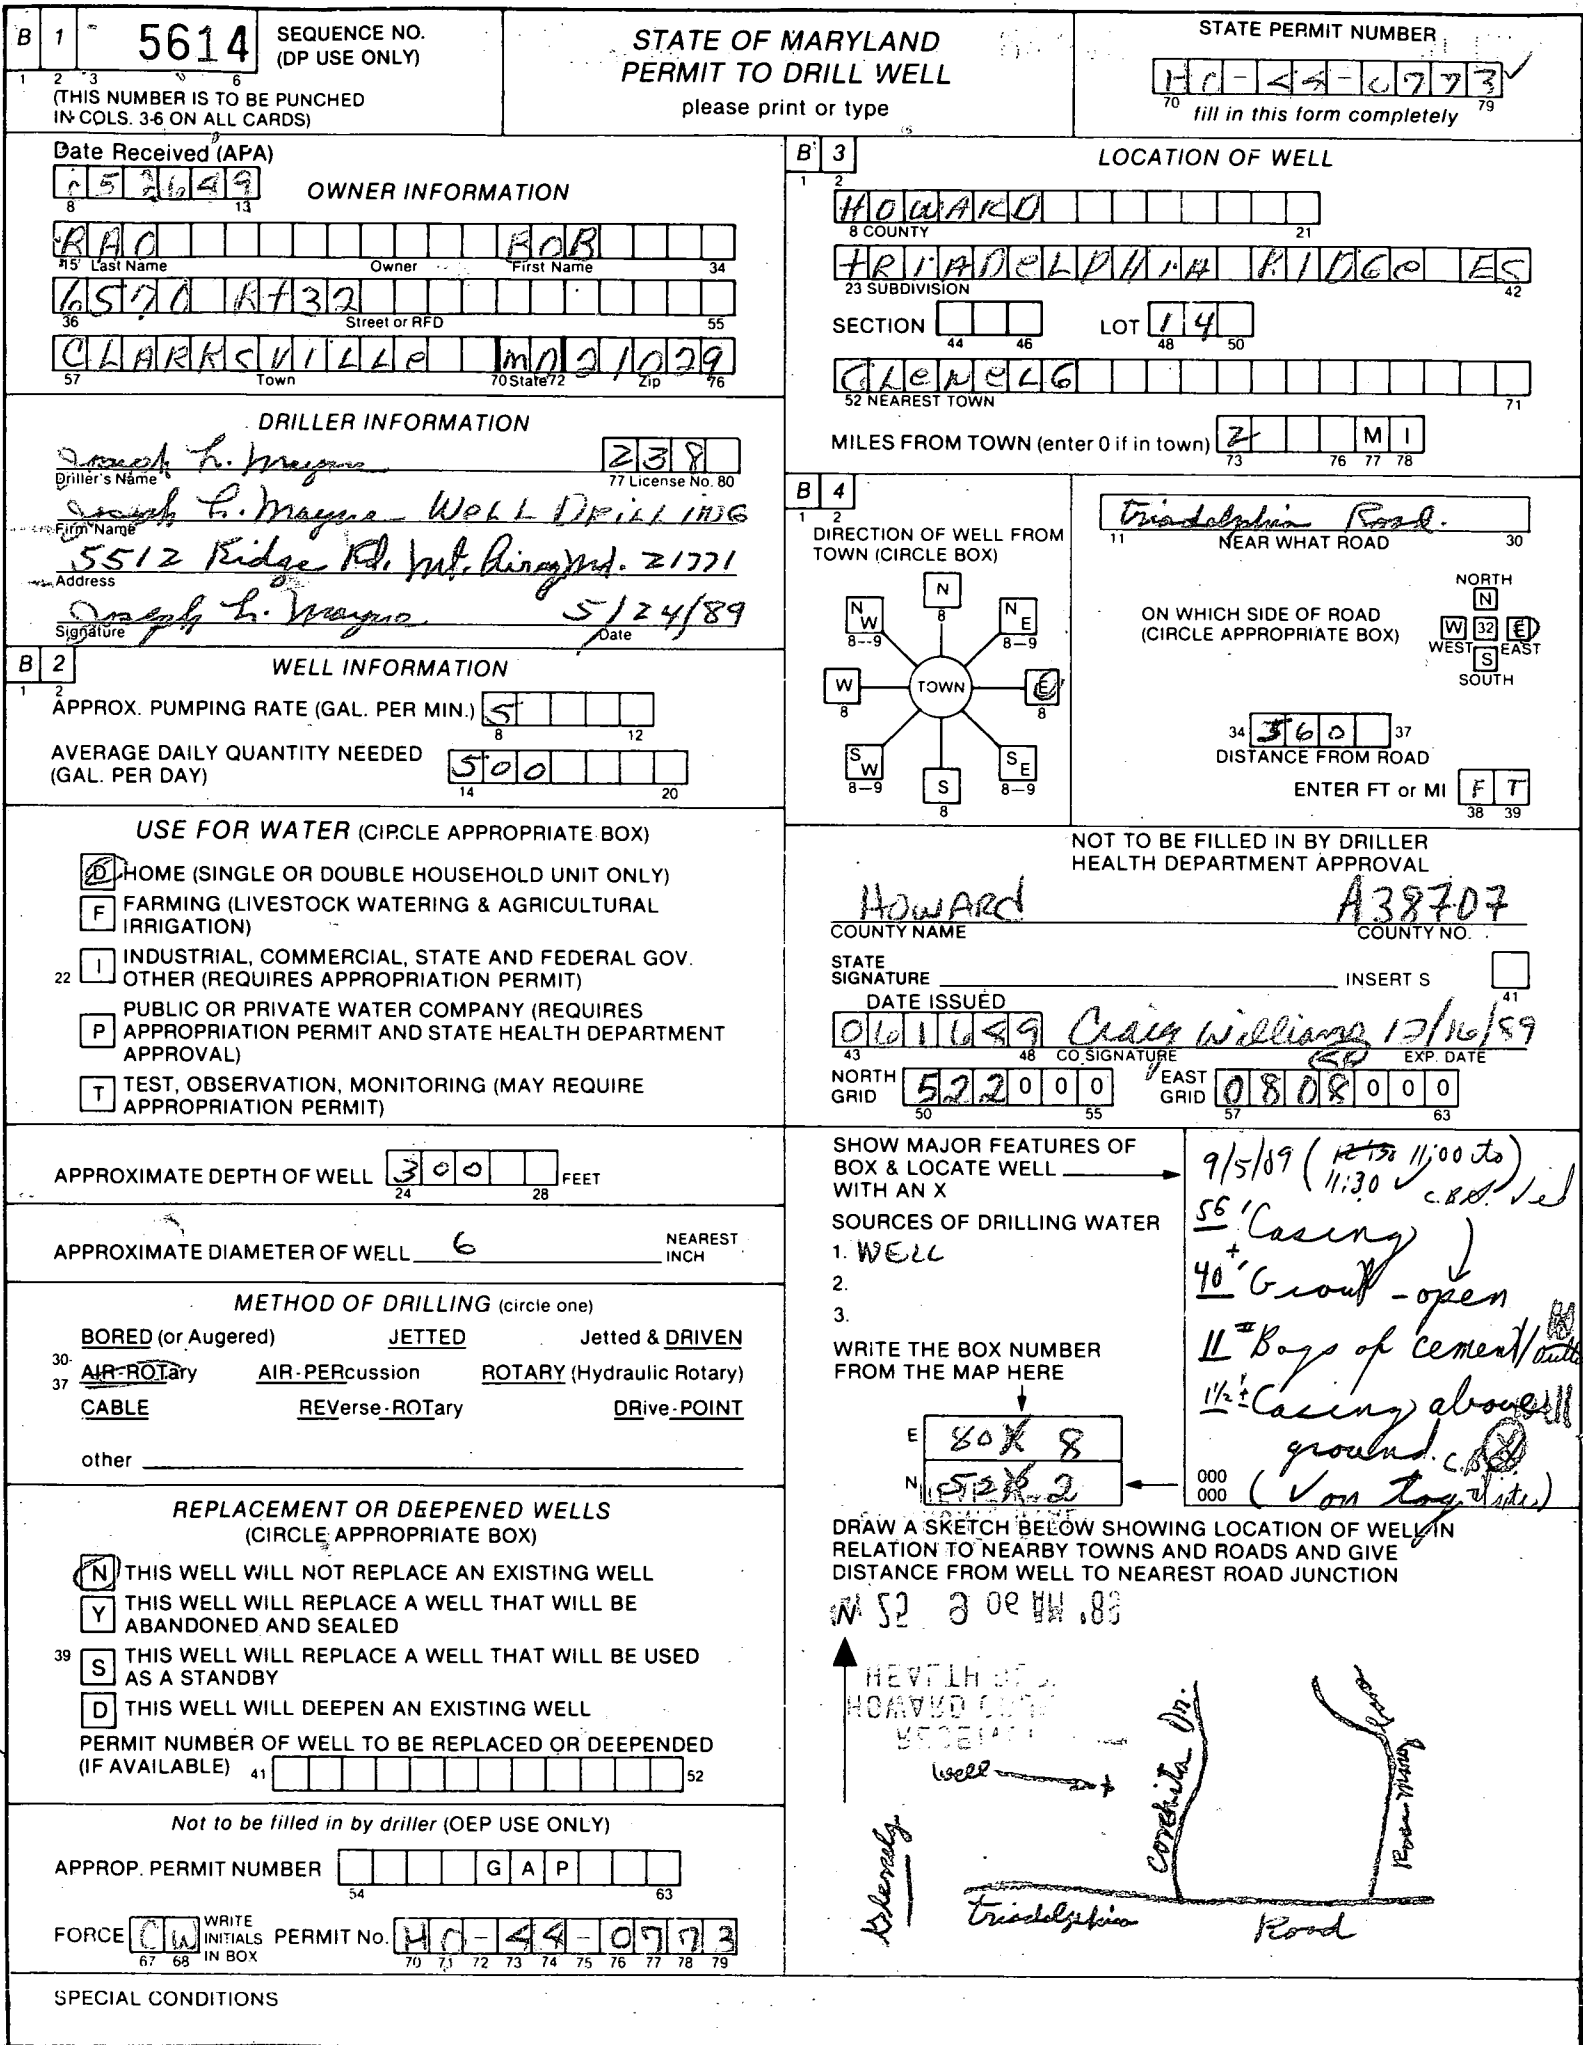 B 1 5614 SEQUENCE NO.
(DP USE ONLY)
1 2 3 6
(THIS NUMBER IS TO BE PUNCHED
IN COLS. 3-6 ON ALL CARDS)
STATE OF MARYLAND
PERMIT TO DRILL WELL
please print or type
STATE PERMIT NUMBER
70 79
fill in this form completely
Date Received (APA)
8 13
OWNER INFORMATION
RAO BOB
15 Last Name Owner First Name 34
6570 Rt 32
36 Street or RFD 55
CLARKSVILLe MD 21029
57 Town 70 State 72 Zip 76
DRILLER INFORMATION
Joseph L. Mayne 238
Driller's Name 77 License No. 80
Joseph L. Mayne WeLL DriLLING
Firm Name
5512 Ridge Rd. Mt. Airy Md. 21771
Address
Joseph L. Mayne 5/24/89
Signature Date
B 2 WELL INFORMATION
1 2
APPROX. PUMPING RATE (GAL. PER MIN.) 5
8 12
AVERAGE DAILY QUANTITY NEEDED
(GAL. PER DAY) 500
14 20
USE FOR WATER (CIRCLE APPROPRIATE BOX)
D HOME (SINGLE OR DOUBLE HOUSEHOLD UNIT ONLY)
F FARMING (LIVESTOCK WATERING & AGRICULTURAL
IRRIGATION)
22 I INDUSTRIAL, COMMERCIAL, STATE AND FEDERAL GOV.
OTHER (REQUIRES APPROPRIATION PERMIT)
P PUBLIC OR PRIVATE WATER COMPANY (REQUIRES
APPROPRIATION PERMIT AND STATE HEALTH DEPARTMENT
APPROVAL)
T TEST, OBSERVATION, MONITORING (MAY REQUIRE
APPROPRIATION PERMIT)
APPROXIMATE DEPTH OF WELL 300 FEET
24 28
APPROXIMATE DIAMETER OF WELL 6 NEAREST
INCH
METHOD OF DRILLING (circle one)
BORED (or Augered) JETTED Jetted & DRIVEN
30-
37 AIR-ROTary AIR-PERcussion ROTARY (Hydraulic Rotary)
CABLE REVerse-ROTary DRive-POINT
other
REPLACEMENT OR DEEPENED WELLS
(CIRCLE APPROPRIATE BOX)
N THIS WELL WILL NOT REPLACE AN EXISTING WELL
Y THIS WELL WILL REPLACE A WELL THAT WILL BE
ABANDONED AND SEALED
39 S THIS WELL WILL REPLACE A WELL THAT WILL BE USED
AS A STANDBY
D THIS WELL WILL DEEPEN AN EXISTING WELL
PERMIT NUMBER OF WELL TO BE REPLACED OR DEEPENDED
(IF AVAILABLE) 41 52
Not to be filled in by driller (OEP USE ONLY)
APPROP. PERMIT NUMBER G A P
54 63
FORCE CW WRITE
INITIALS
IN BOX PERMIT No. HO-44-0773
67 68 70 71 72 73 74 75 76 77 78 79
SPECIAL CONDITIONS
B 3 LOCATION OF WELL
1 2
HOWARD
8 COUNTY 21
tRIADeLPHIA RIDGe ES
23 SUBDIVISION 42
SECTION LOT 14
44 46 48 50
GLeNeLG
52 NEAREST TOWN 71
MILES FROM TOWN (enter 0 if in town) 2 M I
73 76 77 78
B 4
1 2
DIRECTION OF WELL FROM
TOWN (CIRCLE BOX)
N
8
NW
8--9
NE
8--9
W
8
TOWN
E
8
SW
8--9
SE
8--9
S
8
Triadelphia Road.
11 NEAR WHAT ROAD 30
ON WHICH SIDE OF ROAD
(CIRCLE APPROPRIATE BOX)
NORTH
N
W 32 E
WEST EAST
S
SOUTH
34 360 37
DISTANCE FROM ROAD
ENTER FT or MI F T
38 39
NOT TO BE FILLED IN BY DRILLER
HEALTH DEPARTMENT APPROVAL
HOWARd A38707
COUNTY NAME COUNTY NO.
STATE
SIGNATURE INSERT S
41
DATE ISSUED
061689 Craig Williams 12/16/89
43 48 CO SIGNATURE EXP. DATE
NORTH
GRID 522000 EAST
GRID 0808000
50 55 57 63
SHOW MAJOR FEATURES OF
BOX & LOCATE WELL
WITH AN X
SOURCES OF DRILLING WATER
1. WELL
2.
3.
WRITE THE BOX NUMBER
FROM THE MAP HERE
E 80X 8
N 52X 2
000
000
9/5/89 ( 11:00 to
11:30 )
56' Casing
40+' Grout - open
11 Bags of cement/
1½'± Casing above
ground.
(√ on tag & site)
DRAW A SKETCH BELOW SHOWING LOCATION OF WELL IN
RELATION TO NEARBY TOWNS AND ROADS AND GIVE
DISTANCE FROM WELL TO NEAREST ROAD JUNCTION
N
well
Glenelg
Triadelphia Road